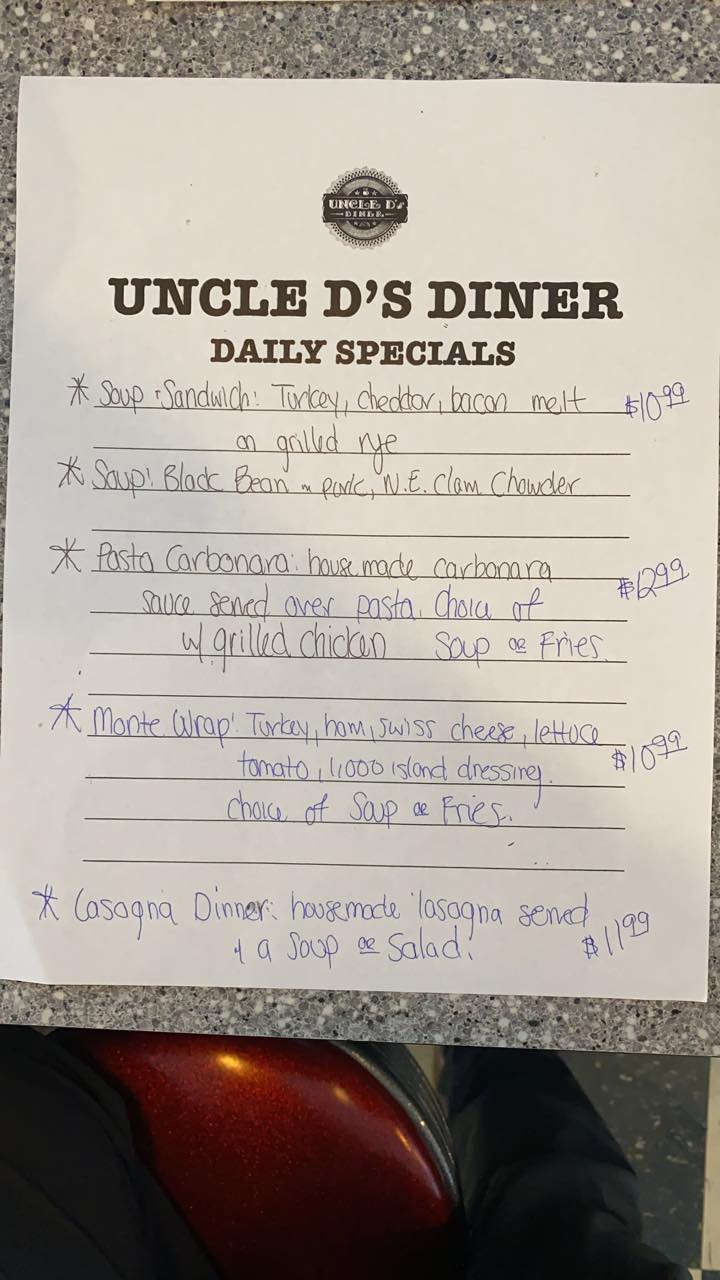 UNCLE D's
DINER
UNCLE D'S DINER
DAILY SPECIALS
* Soup + Sandwich: Turkey, cheddar, bacon melt $10.99
on grilled rye
* Soup: Black Bean w pork, N.E. Clam Chowder
* Pasta Carbonara: housemade carbonara $12.99
sauce served over pasta. Choice of
w/ grilled chicken Soup or Fries.
* Monte Wrap: Turkey, ham, swiss cheese, lettuce $10.99
tomato, 1,000 island dressing.
choice of Soup or Fries.
* Lasagna Dinner: housemade lasagna served $11.99
+ a Soup or Salad.